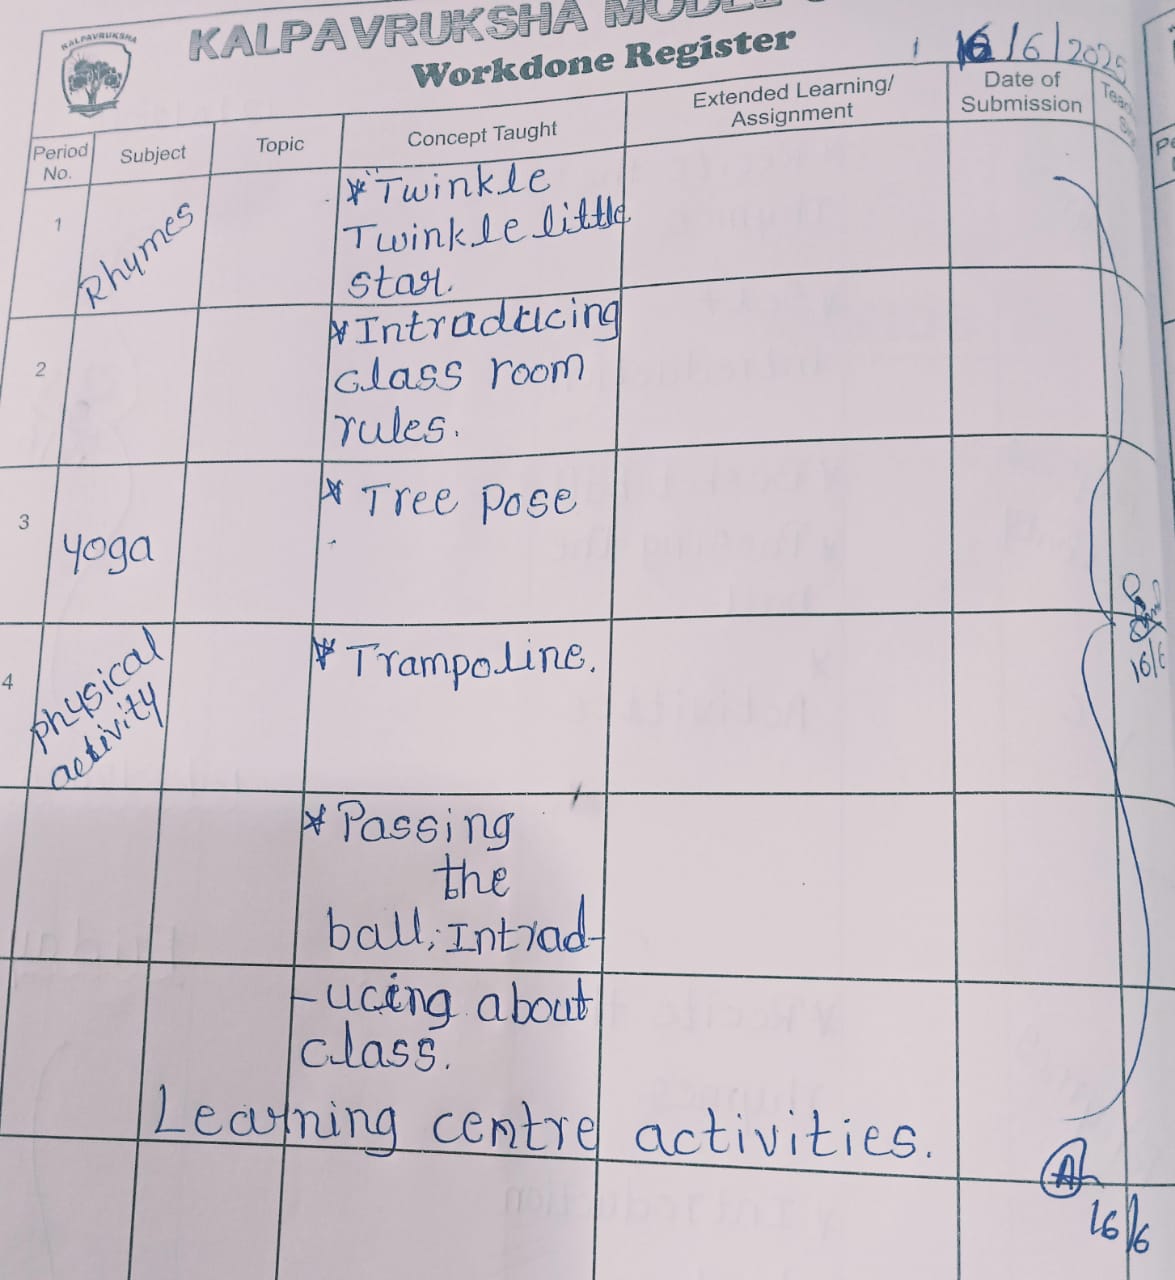 KALPAVRUKSHA
KALPAVRUKSHA MODEL
Workdone Register
16/6/2025
Period No.
Subject
Topic
Concept Taught
Extended Learning/
Assignment
Date of
Submission
1
Rhymes
* "Twinkle
Twinkle little
star.
2
* Intraducing
class room
rules.
3
Yoga
* Tree Pose
4
physical
activity
* Trampoline.
16/6
* Passing
the
ball, Intrad-
-ucing about
class.
Learning centre activities.
16/6